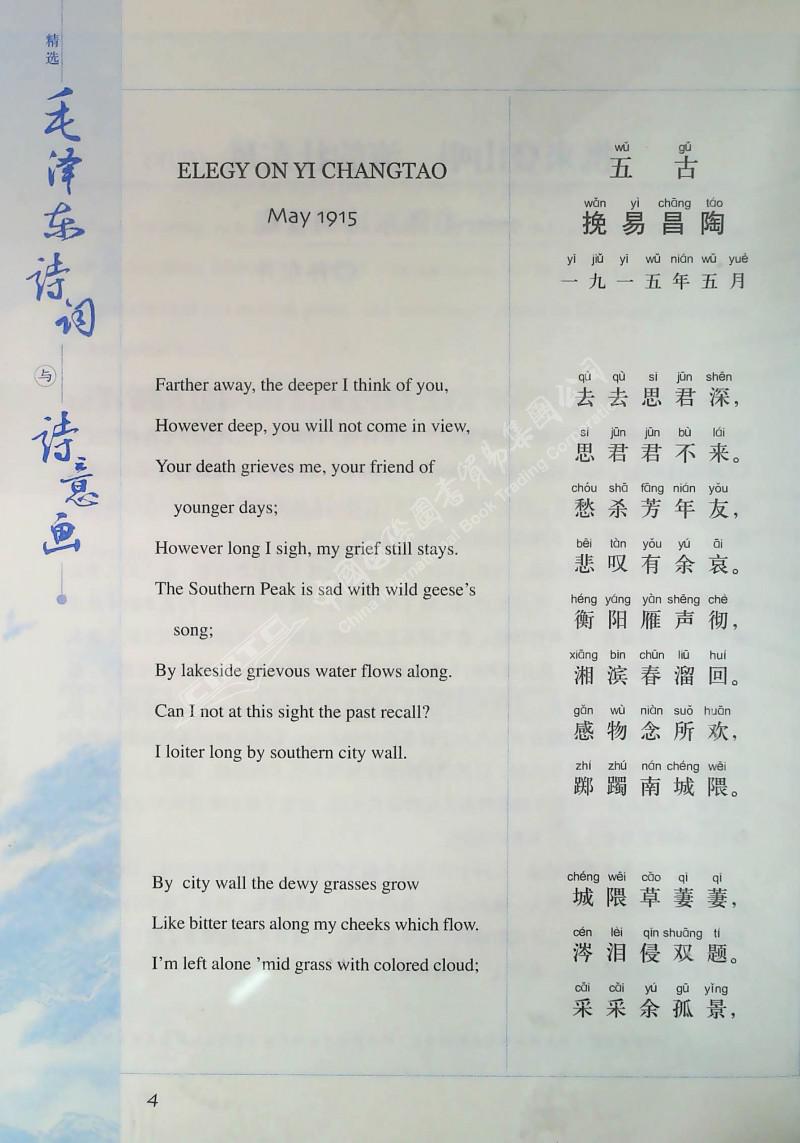 精选
毛泽东诗词
与
诗意画
ELEGY ON YI CHANGTAO
May 1915
Farther away, the deeper I think of you,
However deep, you will not come in view,
Your death grieves me, your friend of
younger days;
However long I sigh, my grief still stays.
The Southern Peak is sad with wild geese's
song;
By lakeside grievous water flows along.
Can I not at this sight the past recall?
I loiter long by southern city wall.
By city wall the dewy grasses grow
Like bitter tears along my cheeks which flow.
I'm left alone 'mid grass with colored cloud;
wǔ gǔ
五古
wǎn yì chāng táo
挽易昌陶
yī jiǔ yī wǔ nián wǔ yuè
一九一五年五月
qù qù sī jūn shēn
去去思君深，
sī jūn jūn bù lái
思君君不来。
chóu shā fāng nián yǒu
愁杀芳年友，
bēi tàn yǒu yú āi
悲叹有余哀。
héng yáng yàn shēng chè
衡阳雁声彻，
xiāng bīn chūn liū huí
湘滨春溜回。
gǎn wù niàn suǒ huān
感物念所欢，
zhí zhú nán chéng wēi
踯躅南城隈。
chéng wēi cǎo qī qī
城隈草萋萋，
cén lèi qīn shuāng tí
涔泪侵双题。
cǎi cǎi yú gū yǐng
采采余孤景，
4
中国国际图书贸易集团公司
China International Book Trading Corporation